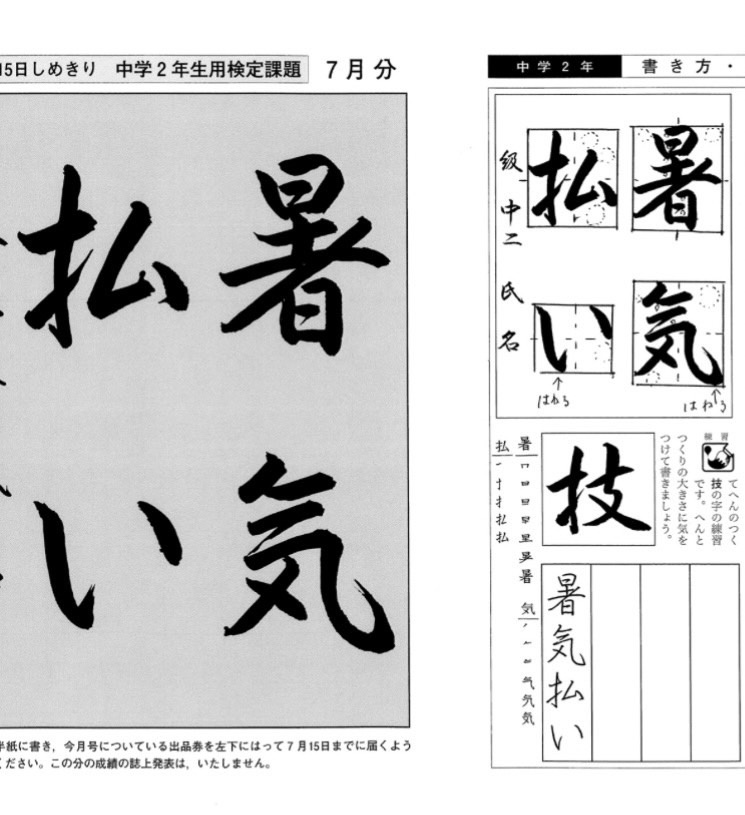 15日しめきり 中学2年生用検定課題 7月分
暑気
払い
半紙に書き，今月号についている出品券を左下にはって7月15日までに届くよう
ください。この分の成績の誌上発表は，いたしません。
中学2年 書き方・
暑気
払い
はねる
はねる
級 中二 氏名
練習
てへんのつく
技の字の練習
です。へんと
つくりの大きさに気を
つけて書きましょう。
技
暑 气
払
暑気払い